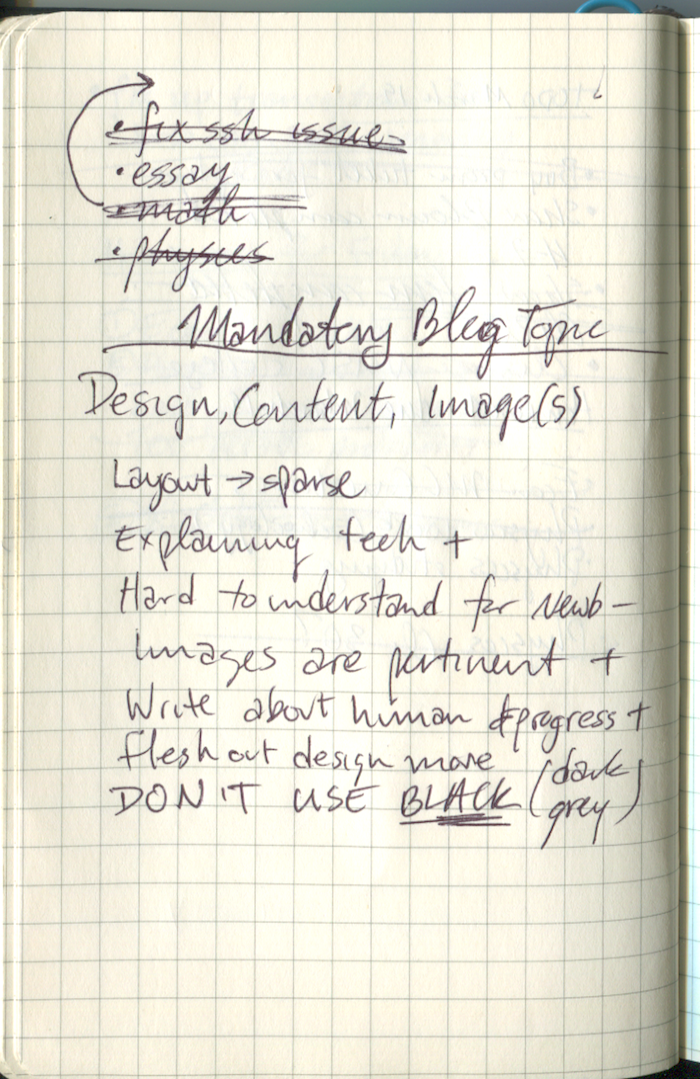 • fix ssh issue
• essay
• math
• physics
Mandatory Blog Topic
Design, Content, Image(s)
Layout → sparse
Explaining tech +
Hard to understand for newb -
Images are pertinent +
Write about human progress +
flesh out design more
DON'T USE BLACK (dark grey)